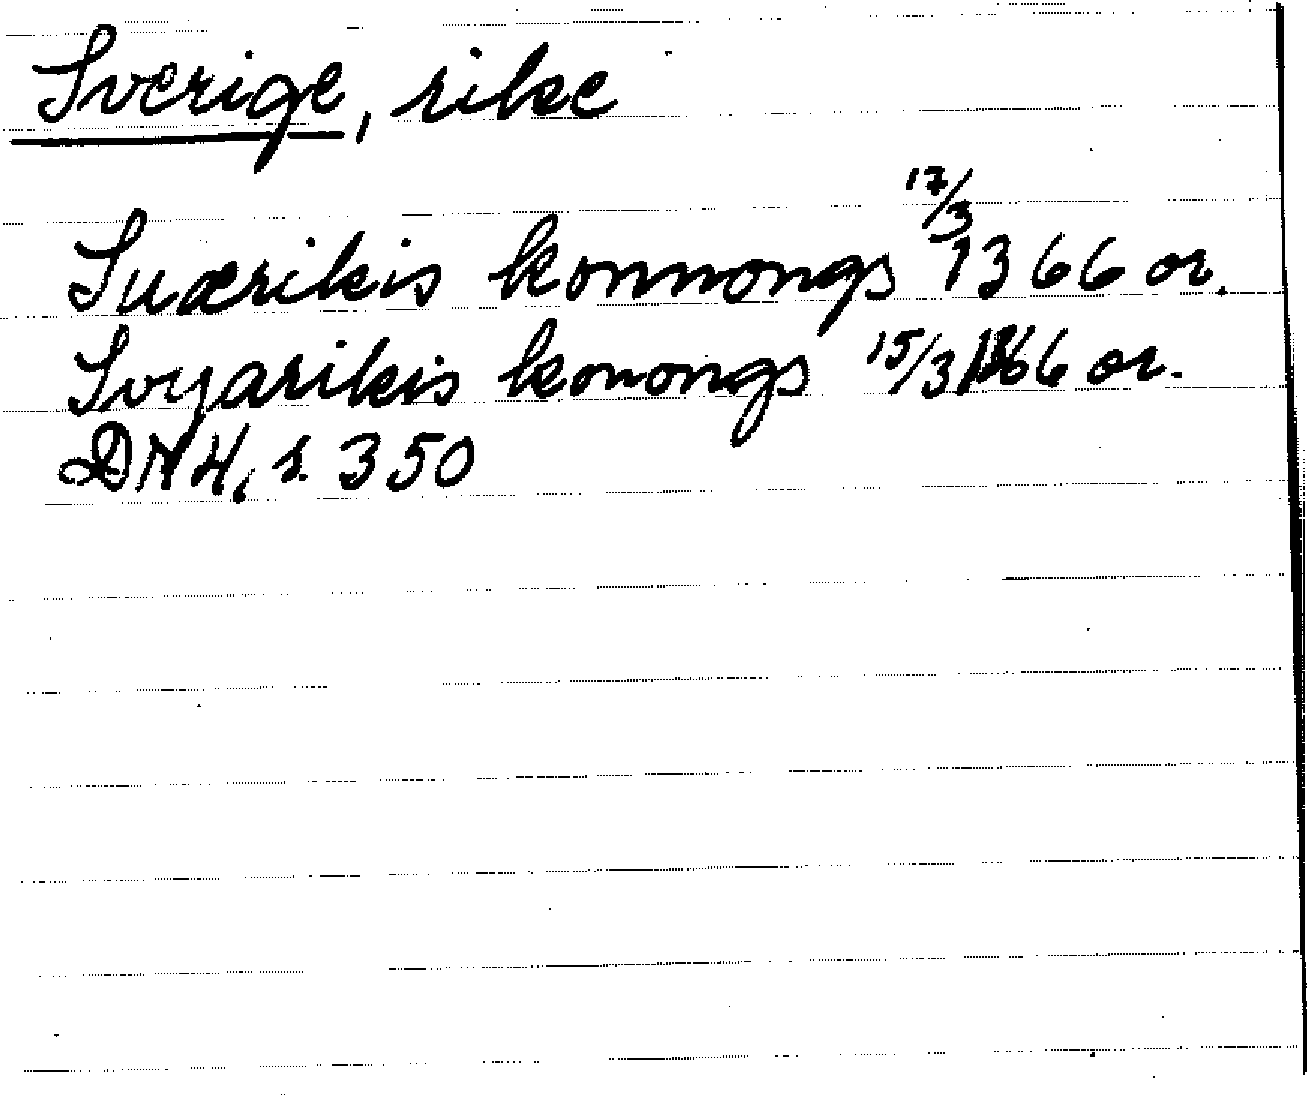 Sverige, rike
Suærikis konnongs 17/3 1366 or.
Svyarikis konongs 15/3 1366 or.
DN 4, s. 350